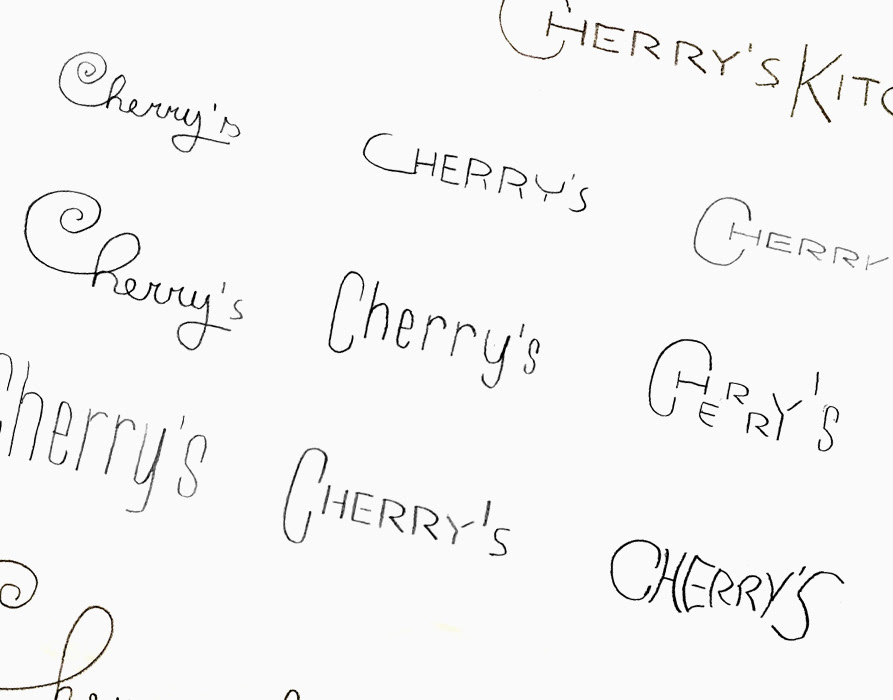 CHERRY'S KITC
Cherry's
CHERRY'S
CHERRY
Cherry's
Cherry's
CHERRY'S
Cherry's
CHERRY'S
CHERRY'S
Cherr